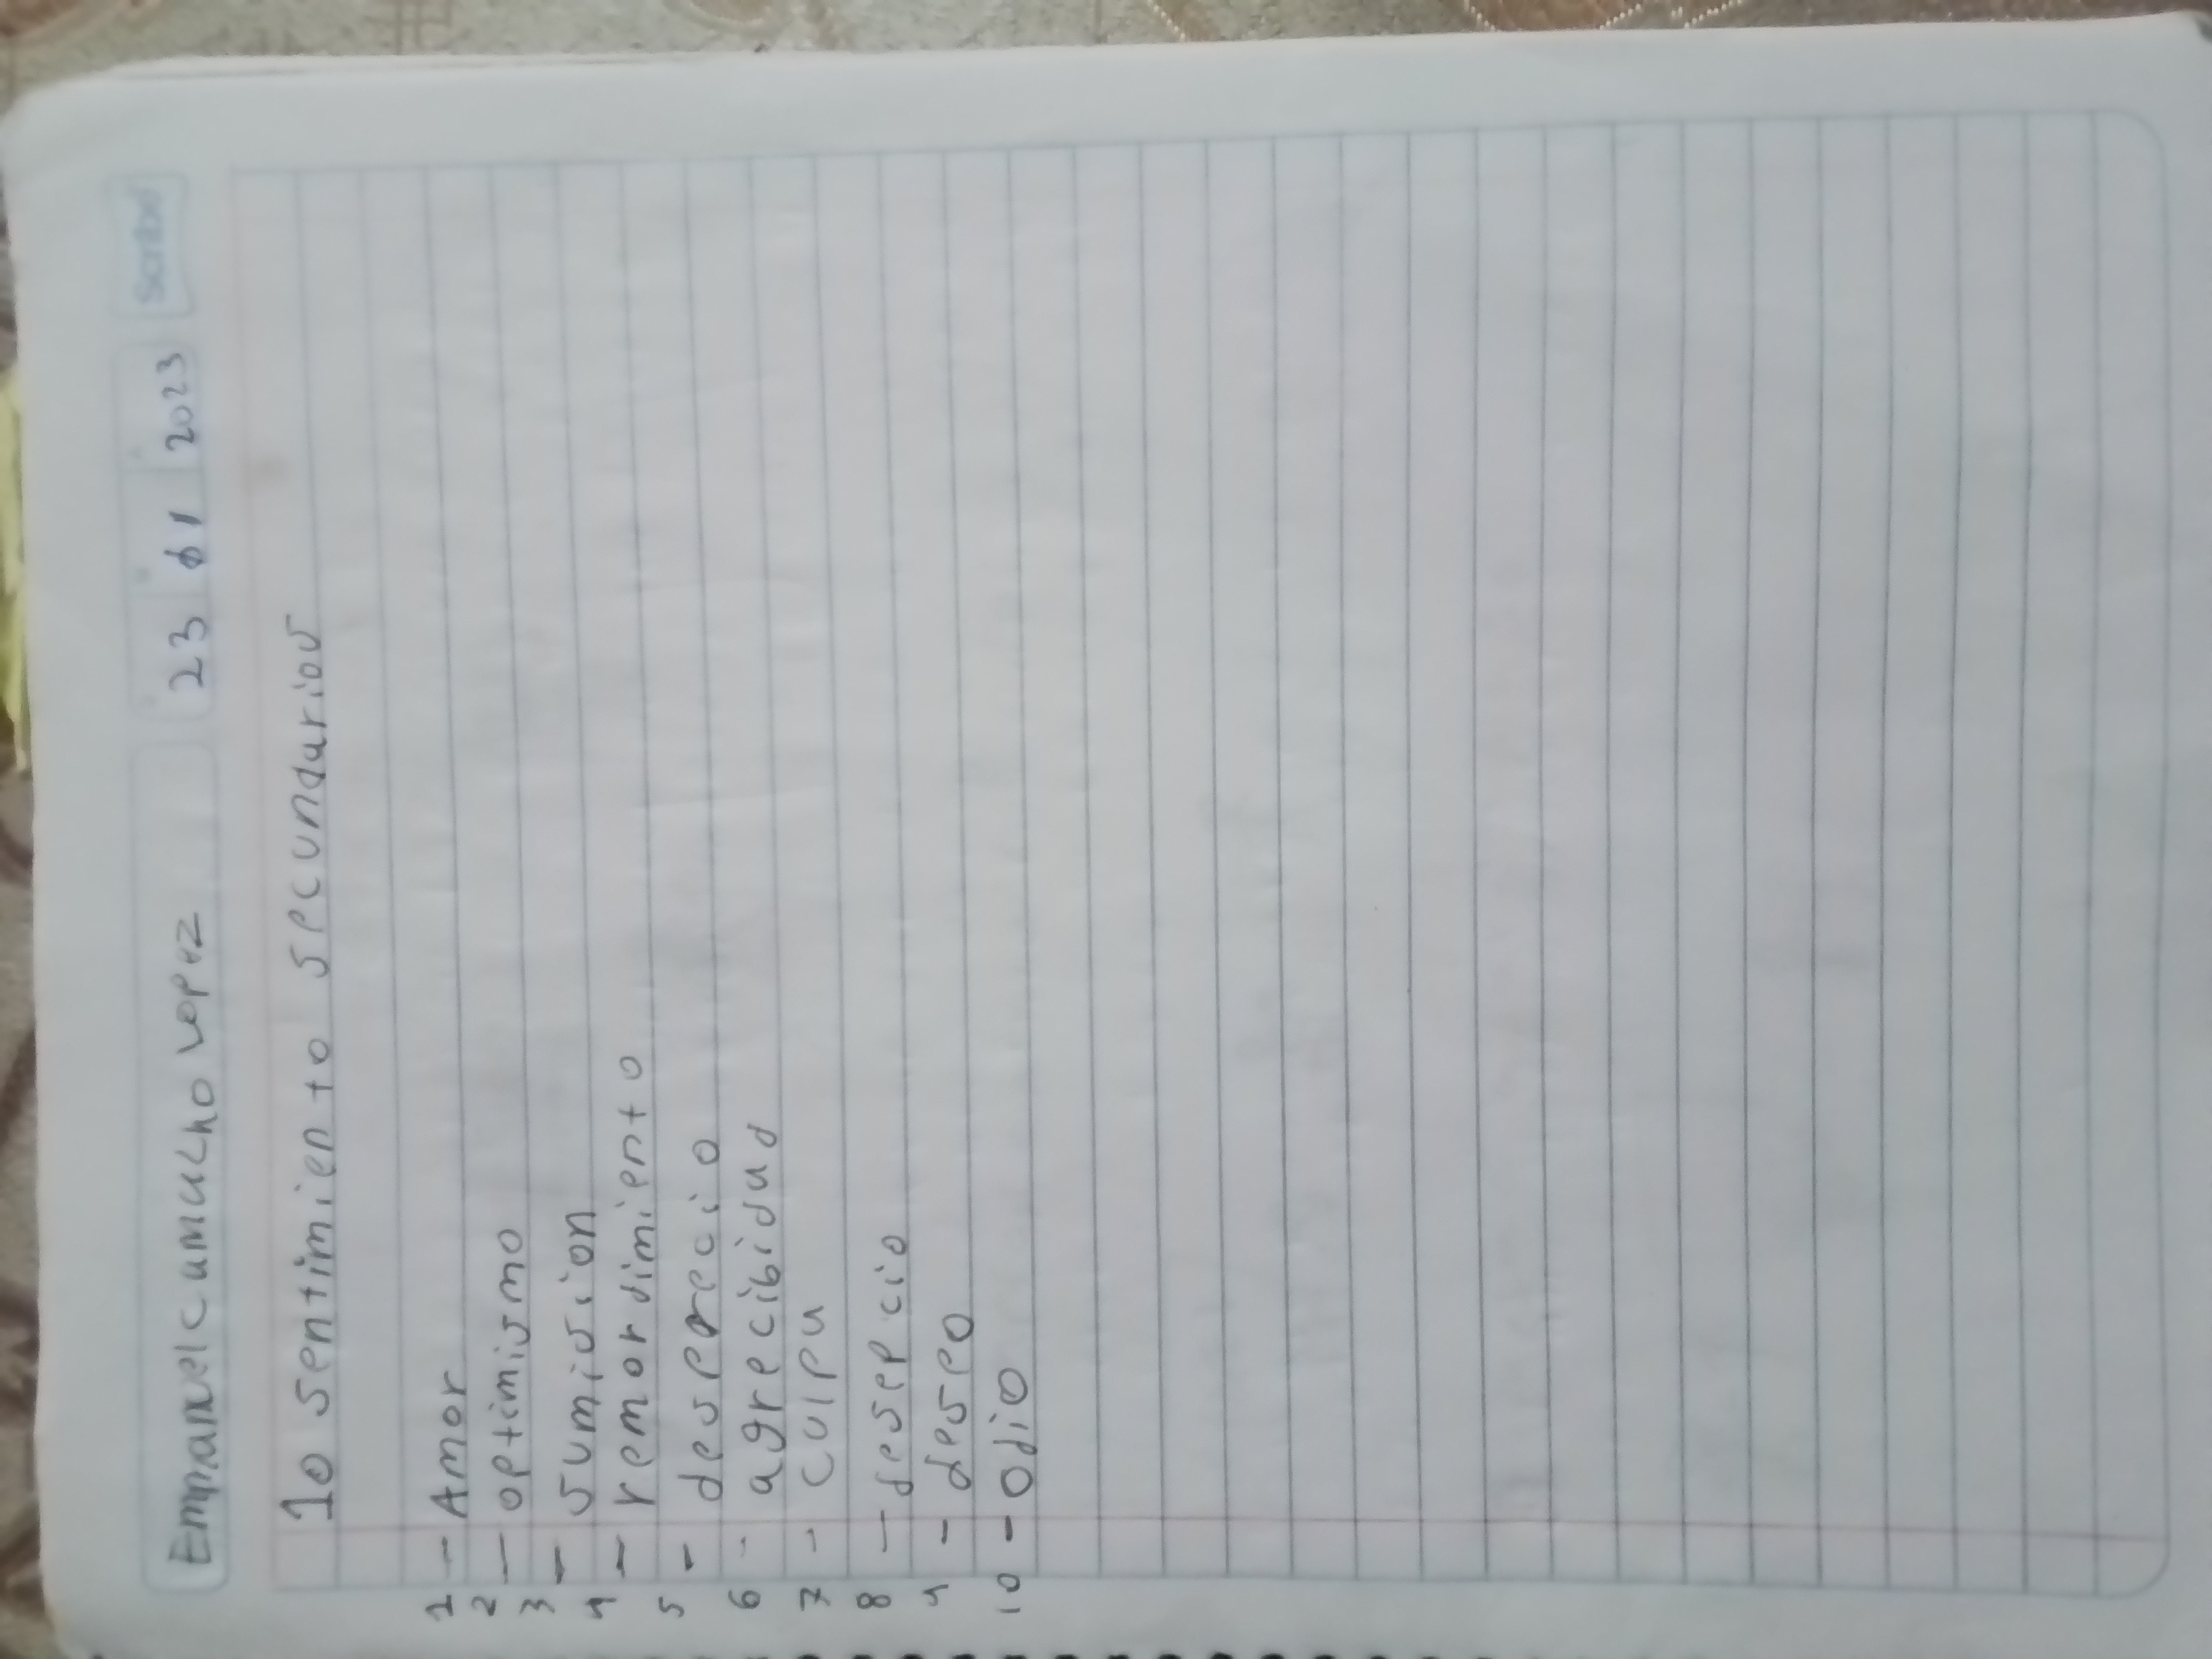 Emmanuel camacho Lopez 23 01 2023 Scribe
10 sentimiento secundarios
1 - Amor
2 - optimismo
3 - sumision
4 - remordimiento
5 - desprecio
6 - agrecibidad
7 - culpa
8 - desepcio
9 - deseo
10 - Odio